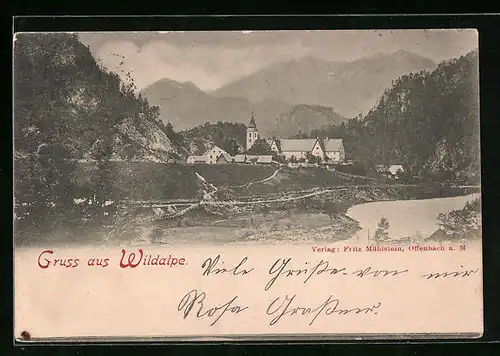 Verlag: Fritz Mühlstein, Offenbach a. M
Gruss aus Wildalpe.
Viele Grüße von mir
Rosa Graßner.